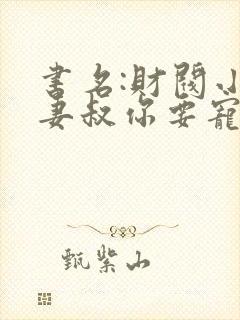 書名:財閥小
妻叔你要寵
甄紫山